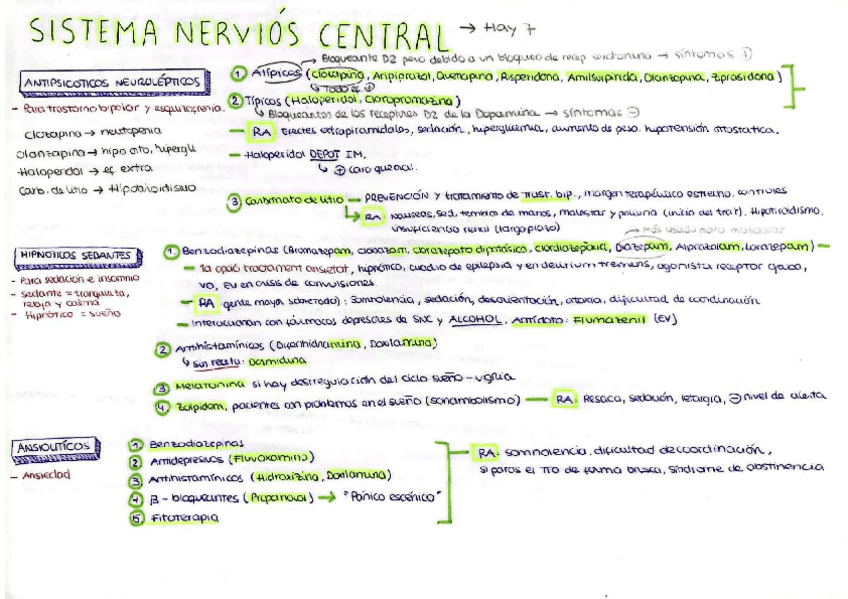 SISTEMA NERVIÓS CENTRAL → Hay 7
→ Bloqueante D2 pero debido a un bloqueo de recep serotonina → síntomas
ANTIPSICOTICOS NEUROLÉPTICOS
- Para trastorno bipolar y esquizofrenia.
Clozapina → neutropenia
Olanzapina → hipo orto, hiperglu
Haloperidol → ef. extra
Carb. de litio → Hipotiroidismo
1 Atípicos (Clozapina, Aripiprazol, Quetiapina, Risperidona, Amilsupirida, Olanzapina, Ziprasidona)
2 Típicos (Haloperidol, Cloropromazina)
↳ Bloqueantes de los receptores D2 de la Dopamina → síntomas
- RA: Efectes extrapiramidales, sedación, hiperglucemia, aumento de peso, hipotensión ortostatica.
- Haloperidol DEPOT IM.
↳ caro que oral.
3 Carbonato de litio - PREVENCIÓN y tratamiento de trast. bip., margen terapéutico estrecho, controles
↳ RA: Nauseas, sed, temblor de manos, malestar y poliuria (inicio del trat). Hipotiroidismo, insuficiencia renal (largo plazo)
→ Más usado para muscular
HIPNOTICOS SEDANTES
- Para sedación e insomnio
- Sedante = tranquiliza, relaja y calma
- Hipnótico = sueño
1 Benzodiazepinas (Bromazepam, clonazepam, clorazepato dipotásico, clordiazepóxido, Diazepam, Alprazolam, Lorazepam) -
- 1a opció tractament ansietat, hipnótico, cuadro de epilepsia y en delirium tremens, agonista receptor gaba,
VO, EV en crisis de convulsiones.
- RA gente mayor sobretodo): Somnolencia, sedación, desorientación, ataxia, dificultad de coordinación
- Interaccionan con fármacos depresores de SNC y ALCOHOL. Antídoto: Flumazenil (EV)
2 Antihistamínicos (Difenhidramina, Doxilamina)
↳ sin receta: Dormidina
3 Melatonina si hay desregulación del ciclo sueño-vigilia
4 Zolpidem, pacientes con problemas en el sueño (sonambolismo) - RA: Resaca, sedación, letargia, nivel de alerta
ANSIOLITICOS
- Ansiedad
1 Benzodiazepinas
2 Antidepresivos (Fluvoxamina)
3 Antihistamínicos (Hidroxizina, Doxilamina)
4 β-bloqueantes (Propanolol) → "Pánico escénico"
5 Fitoterapia
RA: somnolencia, dificultad de coordinación,
si paras el TTO de forma brusca, Síndrome de abstinencia